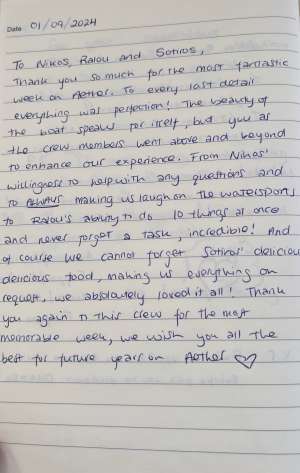 Date 01/09/2024
To Nikos, Ralou and Sotiros,
Thank you so much for the most fantastic
week on Aether. To every last detail
everything was perfection! The beauty of
the boat speaks for itself, but you as
the crew members went above and beyond
to enhance our experience. From Nikos'
willingness to help with any questions and
to ALWAYS making us laugh on the watersports
to Ralou's ability to do 10 things at once
and never forget a task, incredible! And
of course we cannot forget Sotiros' delicious
delicious food, making us everything on
request, we absolutely loved it all! Thank
you again to this crew for the most
memorable week, we wish you all the
best for future years on Aether ♡